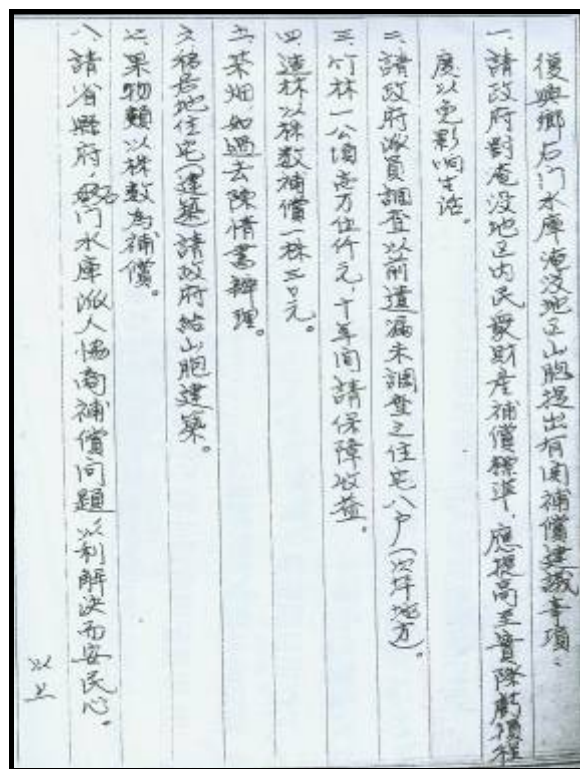 復興鄉石门水庫淹没地区山胞提出有関補償建議事項、
一、請政府對淹没地区内民衆財產補償標準,應提高至實際虧損程
度以免影响生活。
二、請政府派員調查以前遺漏未調查之住宅八户(坪地方)。
三、竹林一公頃壱万伍仟元,十年间請保障收益。
四、造林以株数補償一株三〇元。
五、茶畑如過去陳情書辦理。
六、移居地住宅(建築)請政府給山胞建築。
七、果物類以株數為補償。
八、請省縣府,石门水庫派人協商補償问題以利解決而安民心。
以上